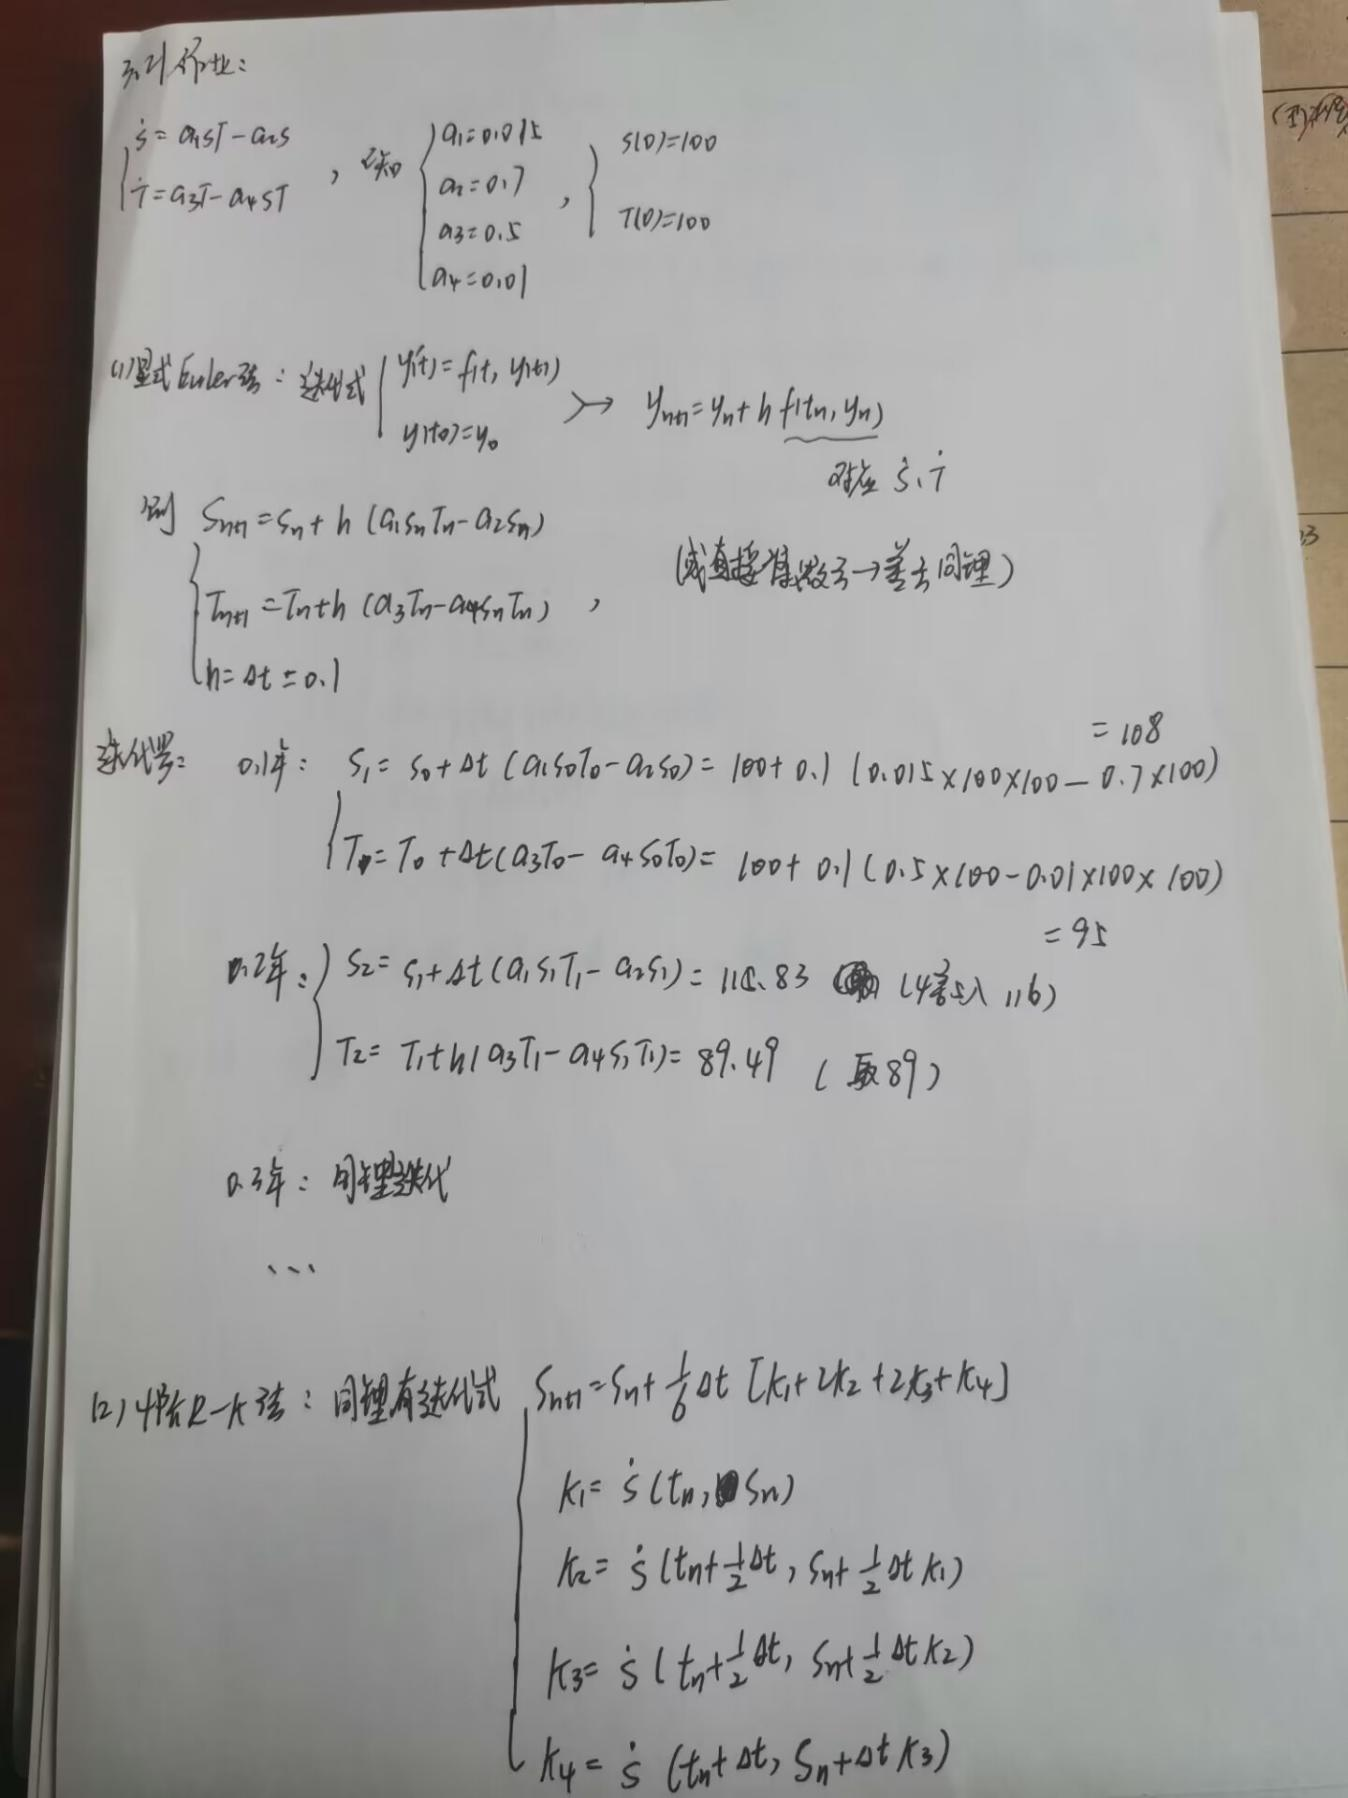 作业:
ṡ = a₁ST - a₂S
Ṫ = a₃T - a₄ST
, 已知
a₁=0.015
a₂=0.7
a₃=0.5
a₄=0.01
,
S(0)=100
T(0)=100
(1) 显式Euler法: 迭代式
y'(t) = f(t, y(t))
y(t₀)=y₀
→ yₙ₊₁=yₙ+h f(tₙ, yₙ)
对应 ṡ、Ṫ
则 Sₙ₊₁ = Sₙ + h (a₁SₙTₙ - a₂Sₙ)
Tₙ₊₁ = Tₙ+h (a₃Tₙ - a₄SₙTₙ) ,
h = Δt = 0.1
(或直接 →差去同理)
迭代: 0.1年: S₁ = S₀ + Δt (a₁S₀T₀ - a₂S₀) = 100 + 0.1 (0.015×100×100 - 0.7×100)
= 108
T₁= T₀ + Δt(a₃T₀ - a₄S₀T₀) = 100 + 0.1 (0.5×100 - 0.01×100×100)
= 95
0.2年: S₂ = S₁+Δt(a₁S₁T₁ - a₂S₁) = 115.83 (4舍5入 116)
T₂ = T₁+h(a₃T₁ - a₄S₁T₁) = 89.49 (取89)
0.3年: 同理迭代
...
(2) 4阶R-K法: 同理有迭代式 Sₙ₊₁ = Sₙ + 1/6 Δt [K₁+2K₂+2K₃+K₄]
K₁ = ṡ (tₙ, Sₙ)
K₂ = ṡ (tₙ+1/2Δt, Sₙ+1/2ΔtK₁)
K₃ = ṡ (tₙ+1/2Δt, Sₙ+1/2ΔtK₂)
K₄ = ṡ (tₙ+Δt, Sₙ+ΔtK₃)